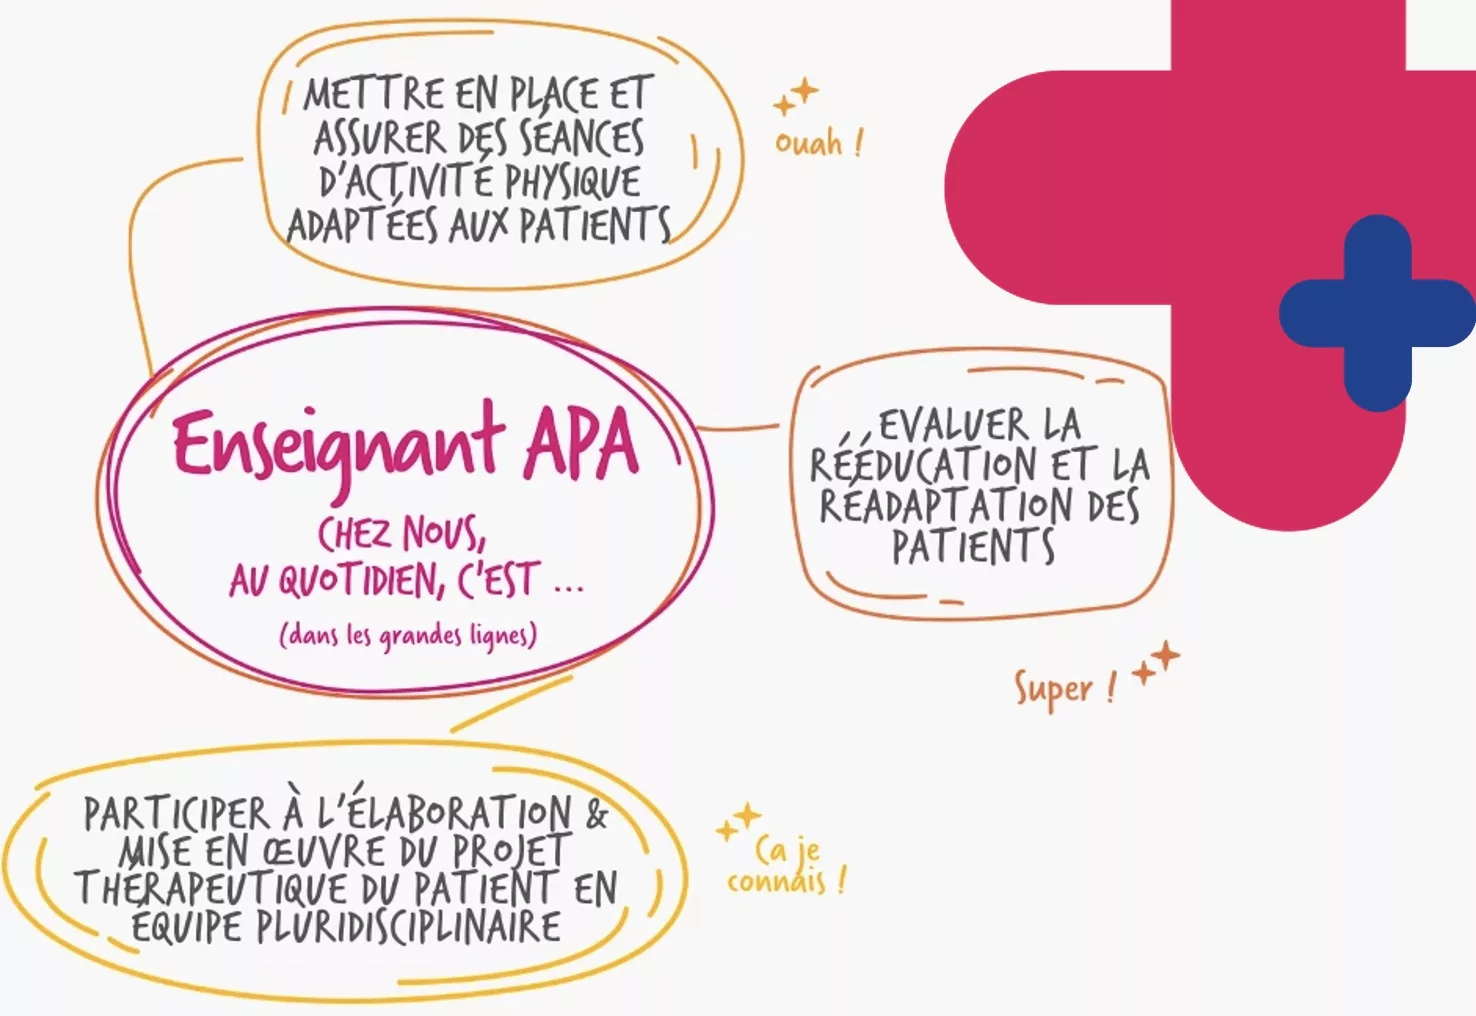 METTRE EN PLACE ET
ASSURER DES SÉANCES
D'ACTIVITÉ PHYSIQUE
ADAPTÉES AUX PATIENTS
ouah !
Enseignant APA
CHEZ NOUS,
AU QUOTIDIEN, C'EST ...
(dans les grandes lignes)
EVALUER LA
RÉÉDUCATION ET LA
RÉADAPTATION DES
PATIENTS
Super !
PARTICIPER À L'ÉLABORATION &
MISE EN ŒUVRE DU PROJET
THÉRAPEUTIQUE DU PATIENT EN
ÉQUIPE PLURIDISCIPLINAIRE
Ca je
connais !